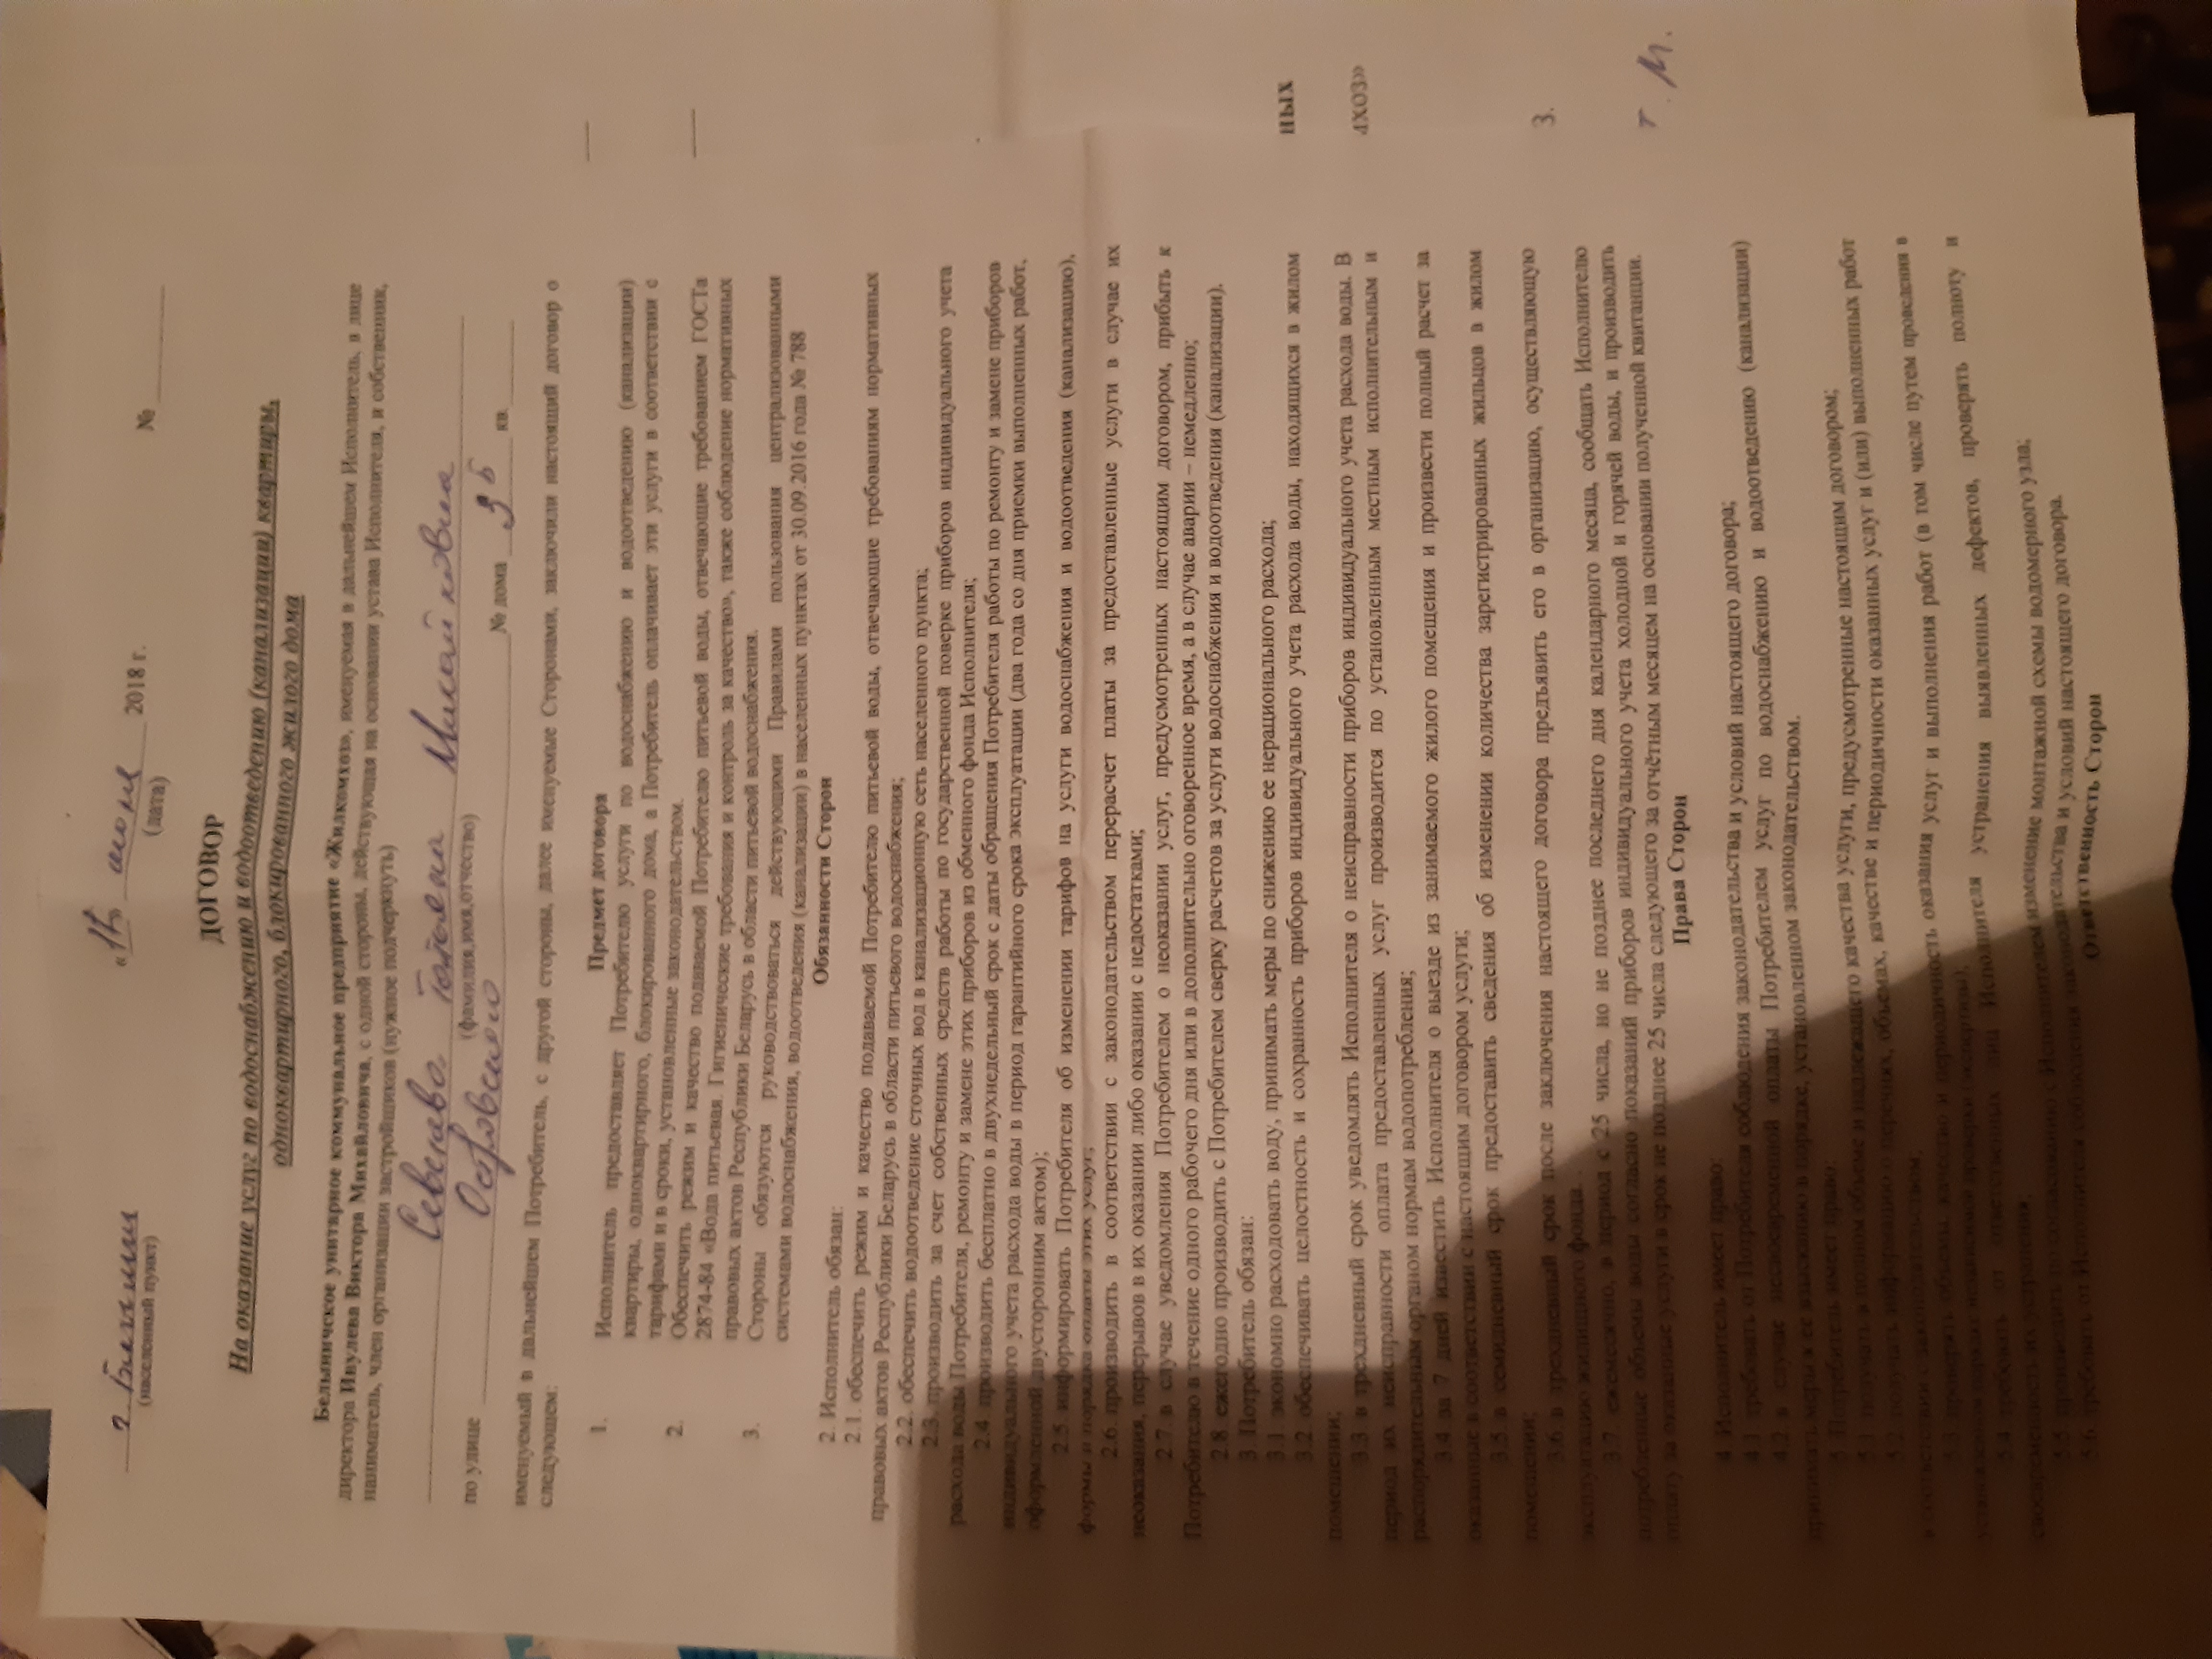 г. Белыничи
(населенный пункт)
« » июня 2018 г. №
(дата)
ДОГОВОР
На оказание услуг по водоснабжению и водоотведению (канализации) квартиры,
одноквартирного, блокированного жилого дома
Белыничское унитарное коммунальное предприятие «Жилкомхоз», именуемая в дальнейшем Исполнитель, в лице
директора Ивулева Виктора Михайловича, с одной стороны, действующая на основании устава Исполнителя, и собственник,
наниматель, член организации застройщиков (нужное подчеркнуть)
Татьяна Михайловна
(фамилия,имя,отчество)
по улице № дома кв.
именуемый в дальнейшем Потребитель, с другой стороны, далее именуемые Сторонами, заключили настоящий договор о
следующем:
Предмет договора
1. Исполнитель предоставляет Потребителю услуги по водоснабжению и водоотведению (канализации)
квартиры, одноквартирного, блокированного дома, а Потребитель оплачивает эти услуги в соответствии с
тарифами и в сроки, установленные законодательством.
2. Обеспечить режим и качество подаваемой Потребителю питьевой воды, отвечающие требованием ГОСТа
2874-84 «Вода питьевая. Гигиенические требования и контроль за качество», также соблюдение нормативных
правовых актов Республики Беларусь в области питьевой водоснабжения.
3. Стороны обязуются руководствоваться действующими Правилами пользования централизованными
системами водоснабжения, водоотведения (канализации) в населенных пунктах от 30.09.2016 года № 788
Обязанности Сторон
2. Исполнитель обязан:
2.1. обеспечить режим и качество подаваемой Потребителю питьевой воды, отвечающие требованиям нормативных
правовых актов Республики Беларусь в области питьевого водоснабжения;
2.2. обеспечить водоотведение сточных вод в канализационную сеть населенного пункта;
2.3. производить за счет собственных средств работы по государственной поверке приборов индивидуального учета
расхода воды Потребителя, ремонту и замене этих приборов из обменного фонда Исполнителя;
2.4 производить бесплатно в двухнедельный срок с даты обращения Потребителя работы по ремонту и замене приборов
индивидуального учета расхода воды в период гарантийного срока эксплуатации (два года со дня приемки выполненных работ,
оформленной двусторонним актом);
2.5 информировать Потребителя об изменении тарифов на услуги водоснабжения и водоотведения (канализацию),
формы и порядка оплаты этих услуг;
2.6. производить в соответствии с законодательством перерасчет платы за предоставленные услуги в случае их
неоказания, перерывов в их оказании либо оказании с недостатками;
2.7 в случае уведомления Потребителем о неоказании услуг, предусмотренных настоящим договором, прибыть к
Потребителю в течение одного рабочего дня или в дополнительно оговоренное время, а в случае аварии – немедленно;
2.8 ежегодно производить с Потребителем сверку расчетов за услуги водоснабжения и водоотведения (канализации).
3 Потребитель обязан:
3.1 экономно расходовать воду, принимать меры по снижению ее нерационального расхода;
3.2 обеспечивать целостность и сохранность приборов индивидуального учета расхода воды, находящихся в жилом
помещении;
3.3 в трехдневный срок уведомлять Исполнителя о неисправности приборов индивидуального учета расхода воды. В
период их неисправности оплата предоставленных услуг производится по установленным местным исполнительным и
распорядительным органом нормам водопотребления;
3.4 за 7 дней известить Исполнителя о выезде из занимаемого жилого помещения и произвести полный расчет за
оказанные в соответствии с настоящим договором услуги;
3.5 в семидневный срок предоставить сведения об изменении количества зарегистрированных жильцов в жилом
помещении;
3.6 в трехдневный срок после заключения настоящего договора предъявить его в организацию, осуществляющую
эксплуатацию жилищного фонда.
3.7 ежемесячно, в период с 25 числа, но не позднее последнего дня календарного месяца, сообщать Исполнителю
потребленные объемы воды согласно показаний приборов индивидуального учета холодной и горячей воды, и производить
оплату за оказанные услуги в срок не позднее 25 числа следующего за отчётным месяцем на основании полученной квитанции.
Права Сторон
4 Исполнитель имеет право:
4.1 требовать от Потребителя соблюдения законодательства и условий настоящего договора;
4.2 в случае несвоевременной оплаты Потребителем услуг по водоснабжению и водоотведению (канализации)
принимать меры к ее взысканию в порядке, установленном законодательством.
5 Потребитель имеет право:
5.1 получать в полном объеме и надлежащего качества услуги, предусмотренные настоящим договором;
5.2 получать информацию о перечнях, объемах, качестве и периодичности оказанных услуг и (или) выполненных работ
в соответствии с законодательством;
5.3 проверять объемы, качество и периодичность оказания услуг и выполнения работ (в том числе путем проведения в
5.4 требовать от ответственных лиц Исполнителя устранения выявленных дефектов, проверять полноту и
своевременность их устранения;
5.5 производить по согласованию с Исполнителем изменение монтажной схемы водомерного узла;
5.6 требовать от Исполнителя соблюдения законодательства и условий настоящего договора.
Ответственность Сторон
ных
3.